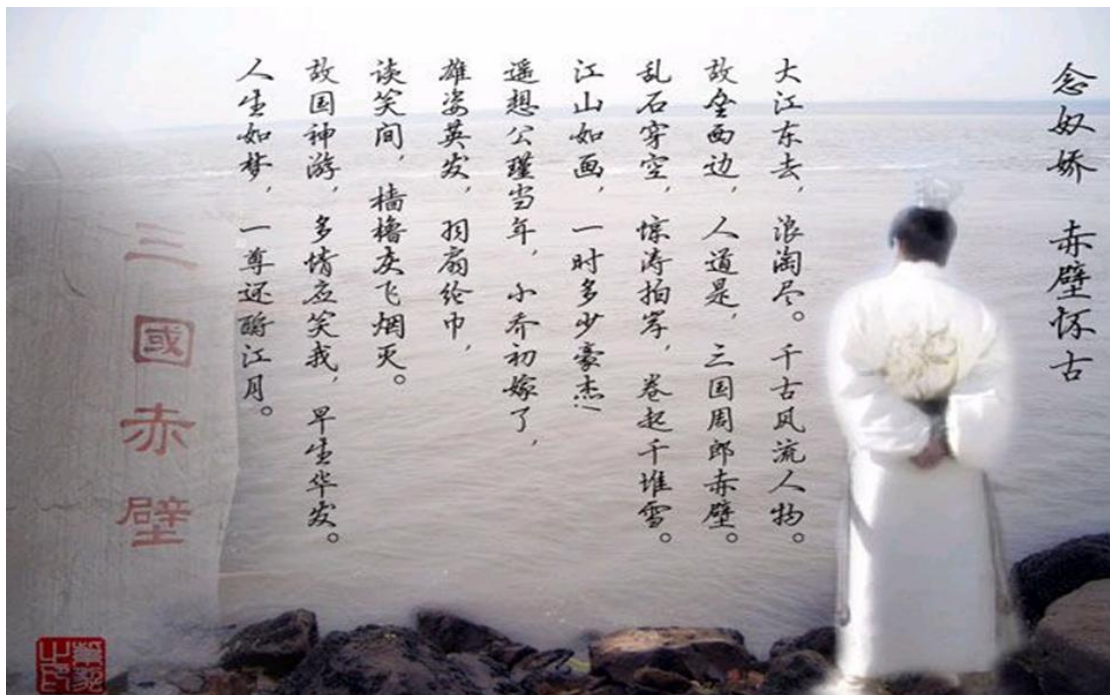 念奴娇 赤壁怀古
大江东去，浪淘尽。千古风流人物。
故垒西边，人道是，三国周郎赤壁。
乱石穿空，惊涛拍岸，卷起千堆雪。
江山如画，一时多少豪杰！
遥想公瑾当年，小乔初嫁了，
雄姿英发，羽扇纶巾，
谈笑间，樯橹灰飞烟灭。
故国神游，多情应笑我，早生华发。
人生如梦，一尊还酹江月。
三國赤壁